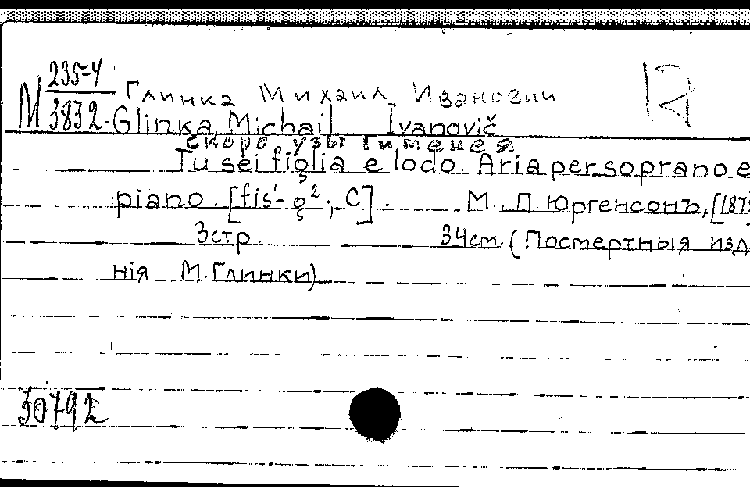 М 235-4 Глинка Михаил Иванович
3832 Glinka, Michail Ivanovič
скоро узы Гименея
Tu sei figlia e lodo. Aria per soprano e
piano. [fis¹-g²; C]. М. П. Юргенсонъ, [187
3стр. 34см. (Посмертныя изда
нія М. Глинки)
30792